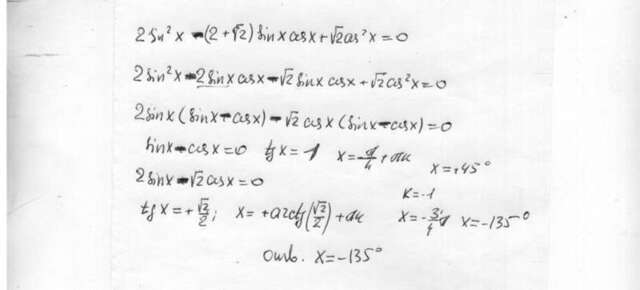 2 sin² x - (2 + √2) sin x cos x + √2 cos² x = 0
2 sin² x - 2 sin x cos x - √2 sin x cos x + √2 cos² x = 0
2 sin x (sin x - cos x) - √2 cos x (sin x - cos x) = 0
sin x - cos x = 0 tg x = 1 x = π/4 + πk x = +45°
2 sin x - √2 cos x = 0 k = -1
tg x = + √2/2; x = + arctg(√2/2) + πk x = - 3π/4 x = -135°
Отв. x = -135°